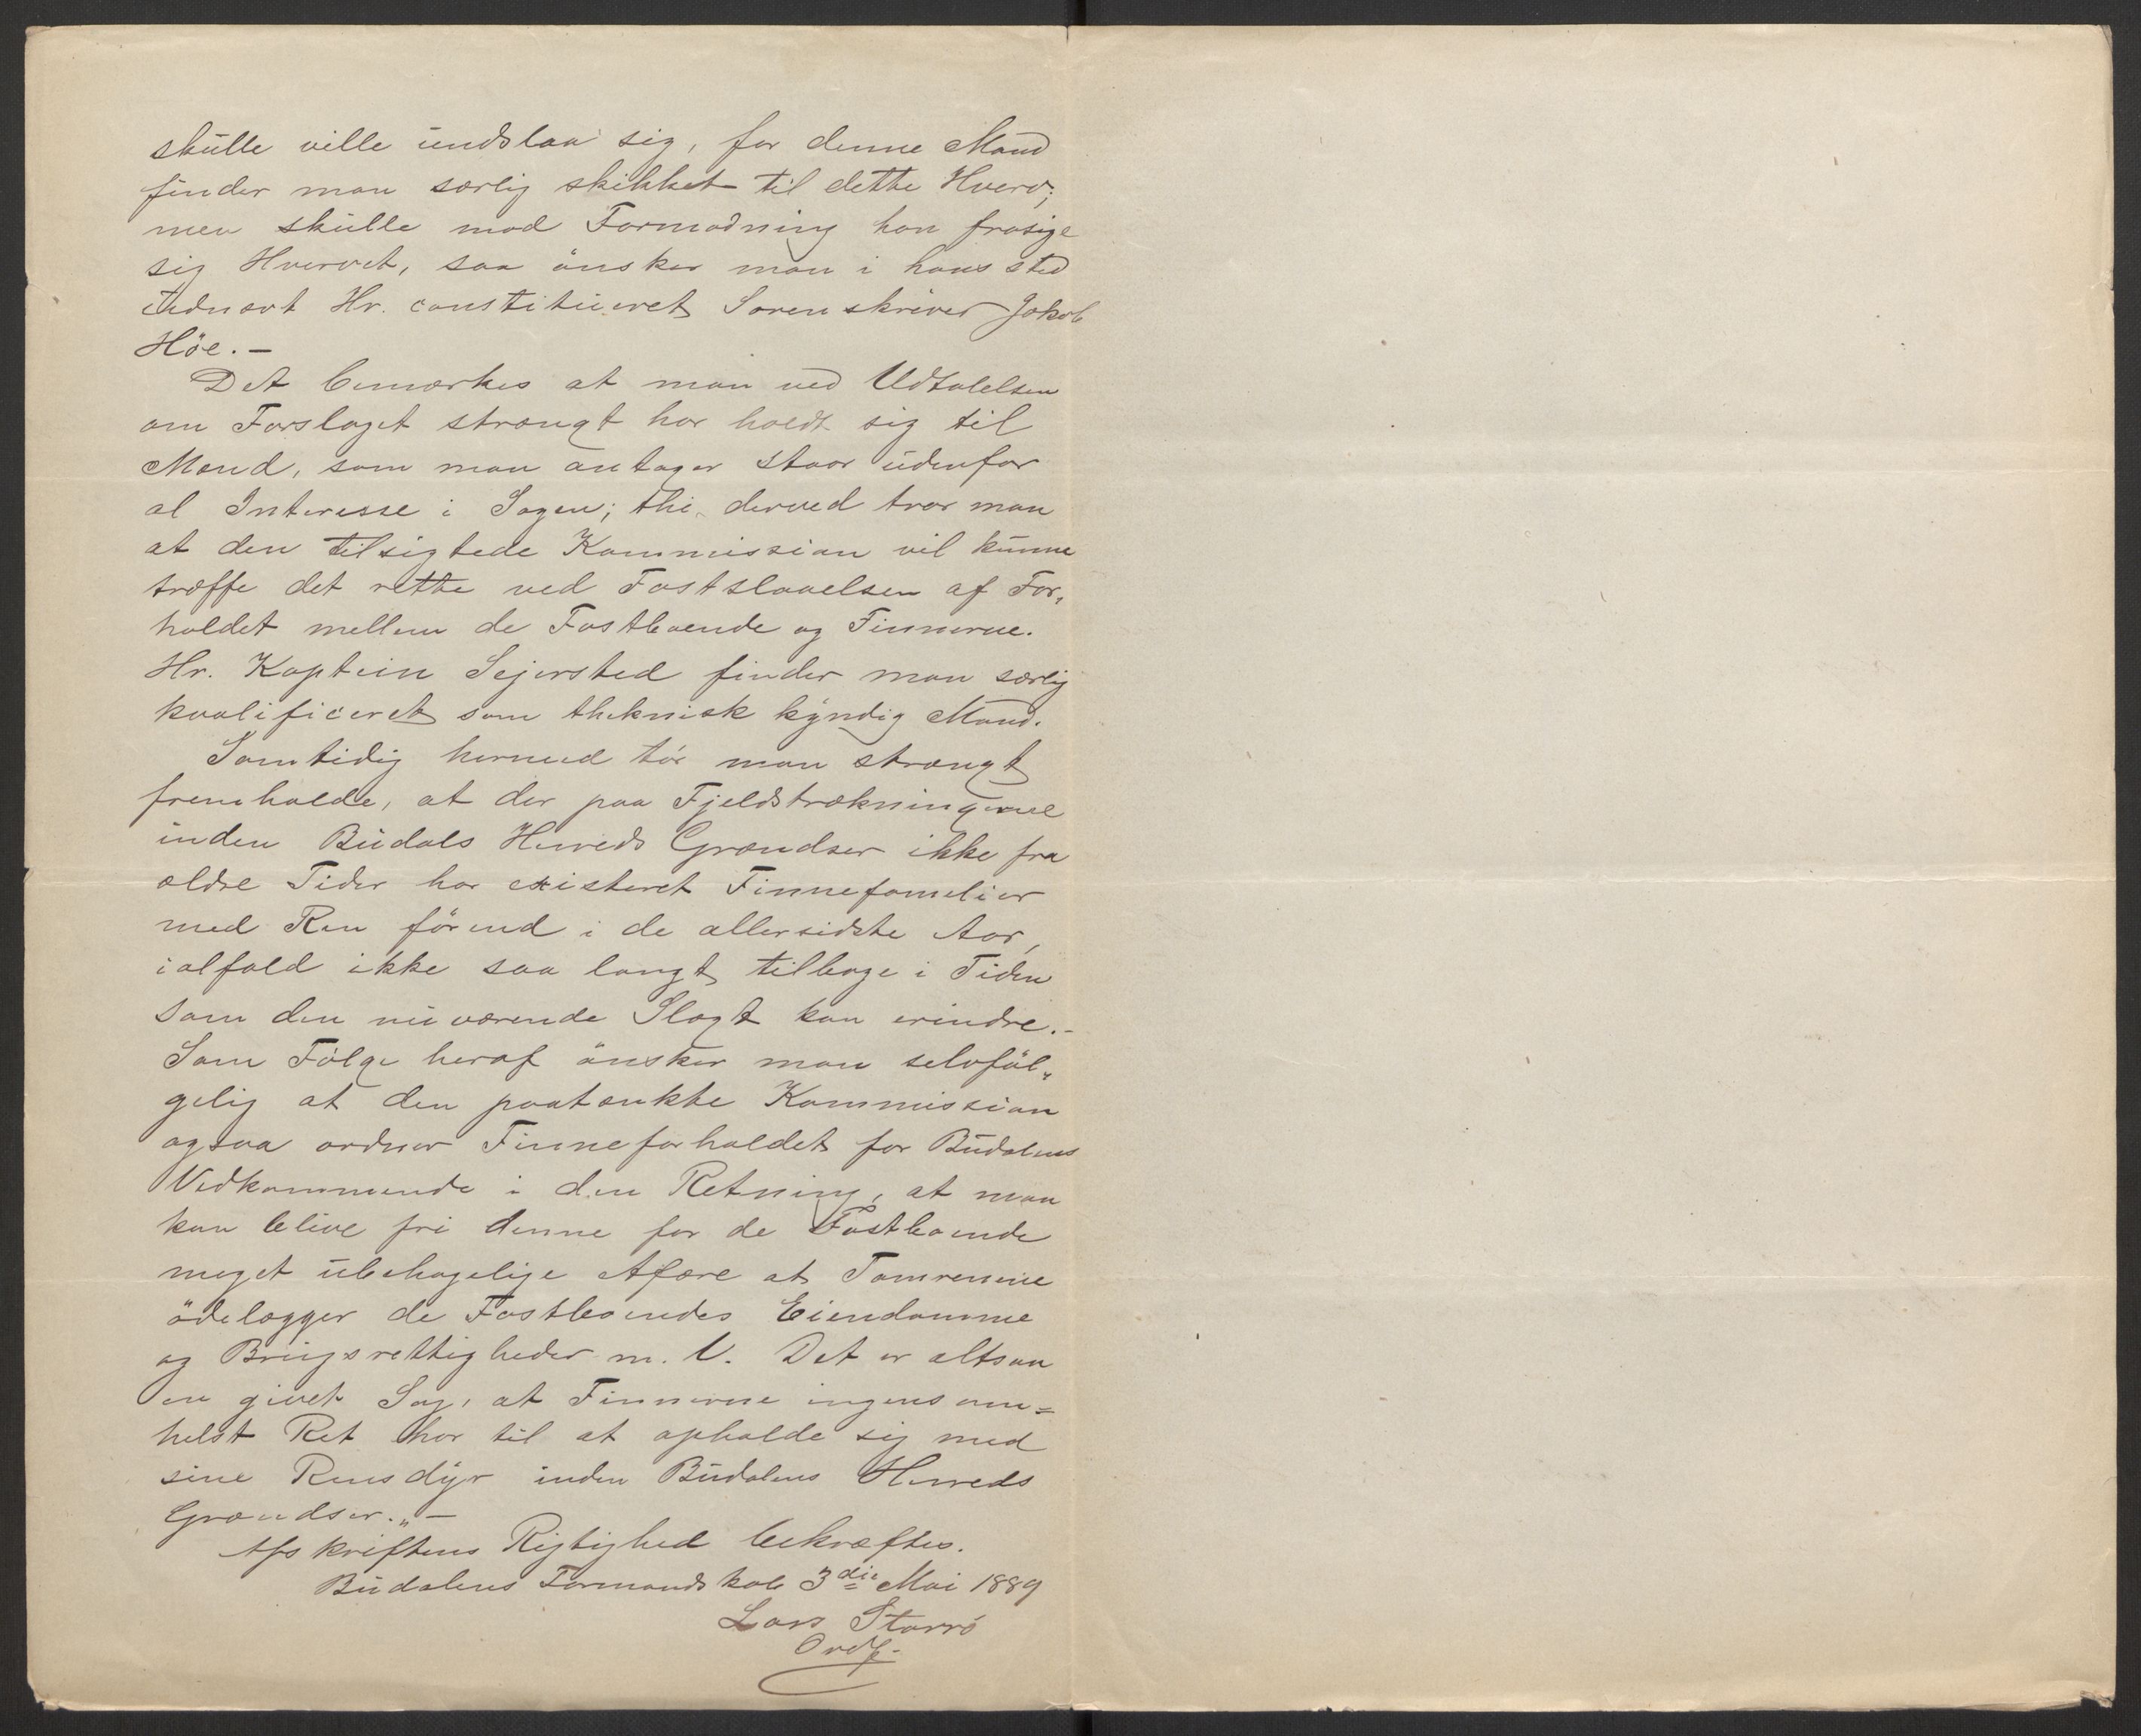 skulle ville undslaa sig, for denne Mand
finder man særlig skikket til dette Hverv;
men skulle mod Formodning han frasige
sig Hvervet, saa ønsker man i hans sted
udnævt Hr. constitueret Sorenskriver Jakob
Høe. —
Det bemærkes at man ved Udtalelsen
om Forslaget strængt har holdt sig til
Mænd, som man antager staar udenfor
al Interesse i Sagen; thi derved tror man
at den tilsigtede Kommission vil kunne
træffe det rette ved Fastslaaelsen af For„
holdet mellem de Fastboende og Finnerne.
Hr. Kaptein Sejersted finder man særlig
kvalificeret som theknisk kyndig Mand.
Samtidig hermed tør man strængt
fremholde, at der paa Fjeldstrækningerne
inden Budals Herreds Grændser ikke fra
ældre Tider har existeret Finnefamelier
med Ren førend i de allersidste Aar,
ialfald ikke saa langt tilbage i Tiden
som den nuværende Slægt kan erindre. —
Som Følge heraf ønsker man selvføl„
gelig at den paatænkte Kommission
ogsaa ordner Finneforholdet for Budalens
Vedkommende i den Retning, at man
kan blive fri denne for de Fastboende
meget ubehagelige Afære at Tamrenene
ødelægger de Fastboendes Eiendomme
og Brugsrettigheder m. V. Det er altsaa
en givet Sag, at Finnerne ingensom=
helst Ret har til at opholde sig med
sine Rensdyr inden Budalens Herreds
Grændser.„ —
Afskriftens Rigtighed bekræftes.
Budalens Formandskab 3die Mai 1889
Lars Storrø
Ordf.